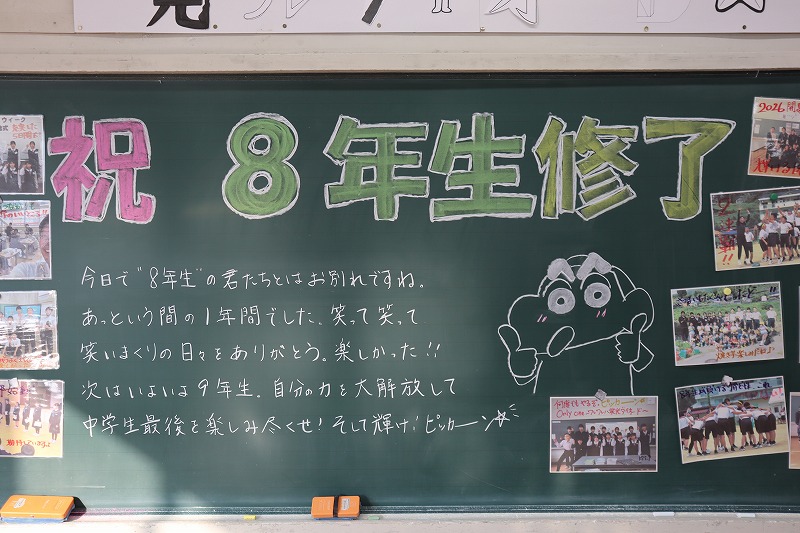 祝 8年生修了
今日で"8年生"の君たちとはお別れですね。
あっという間の1年間でした。笑って笑って
笑いまくりの日々をありがとう。楽しかった!!
次はいよいよ9年生。自分の力を大解放して
中学生最後を楽しみ尽くせ!そして輝け!ピッカーン☆
ウィーク
2026
Only one